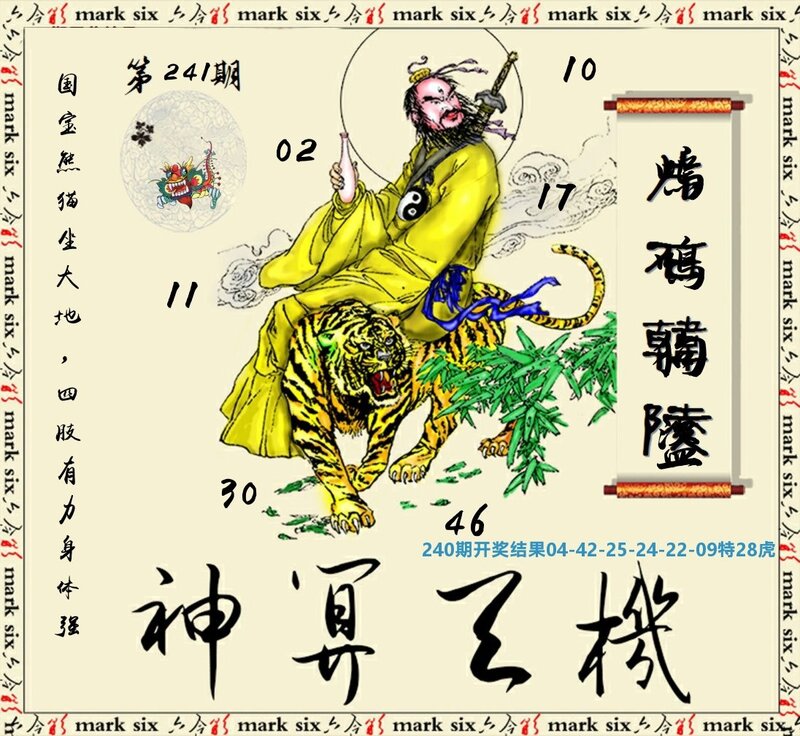 mark six mark six mark six mark six mark six
第241期
国宝熊猫坐大地，四肢有力身体强
10
02
17
11
30
46
240期开奖结果04-42-25-24-22-09特28虎
神算天機
mark six mark six mark six mark six mark six